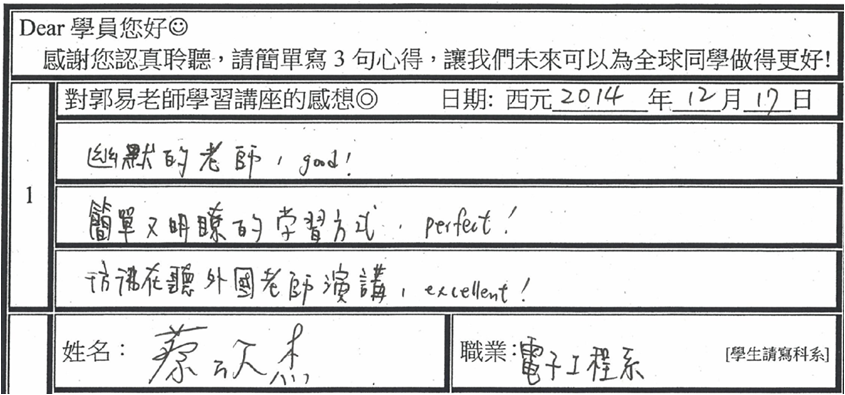 Dear 學員您好☺
感謝您認真聆聽，請簡單寫 3 句心得，讓我們未來可以為全球同學做得更好!
對郭易老師學習講座的感想◎ 日期: 西元 2014 年 12 月 17 日
1
幽默的老師，good!
簡單又明瞭的学習方式，perfect!
彷彿在聽外國老師演講，excellent!
姓名： 蔡 杰 職業：電子工程系 [學生請寫科系]